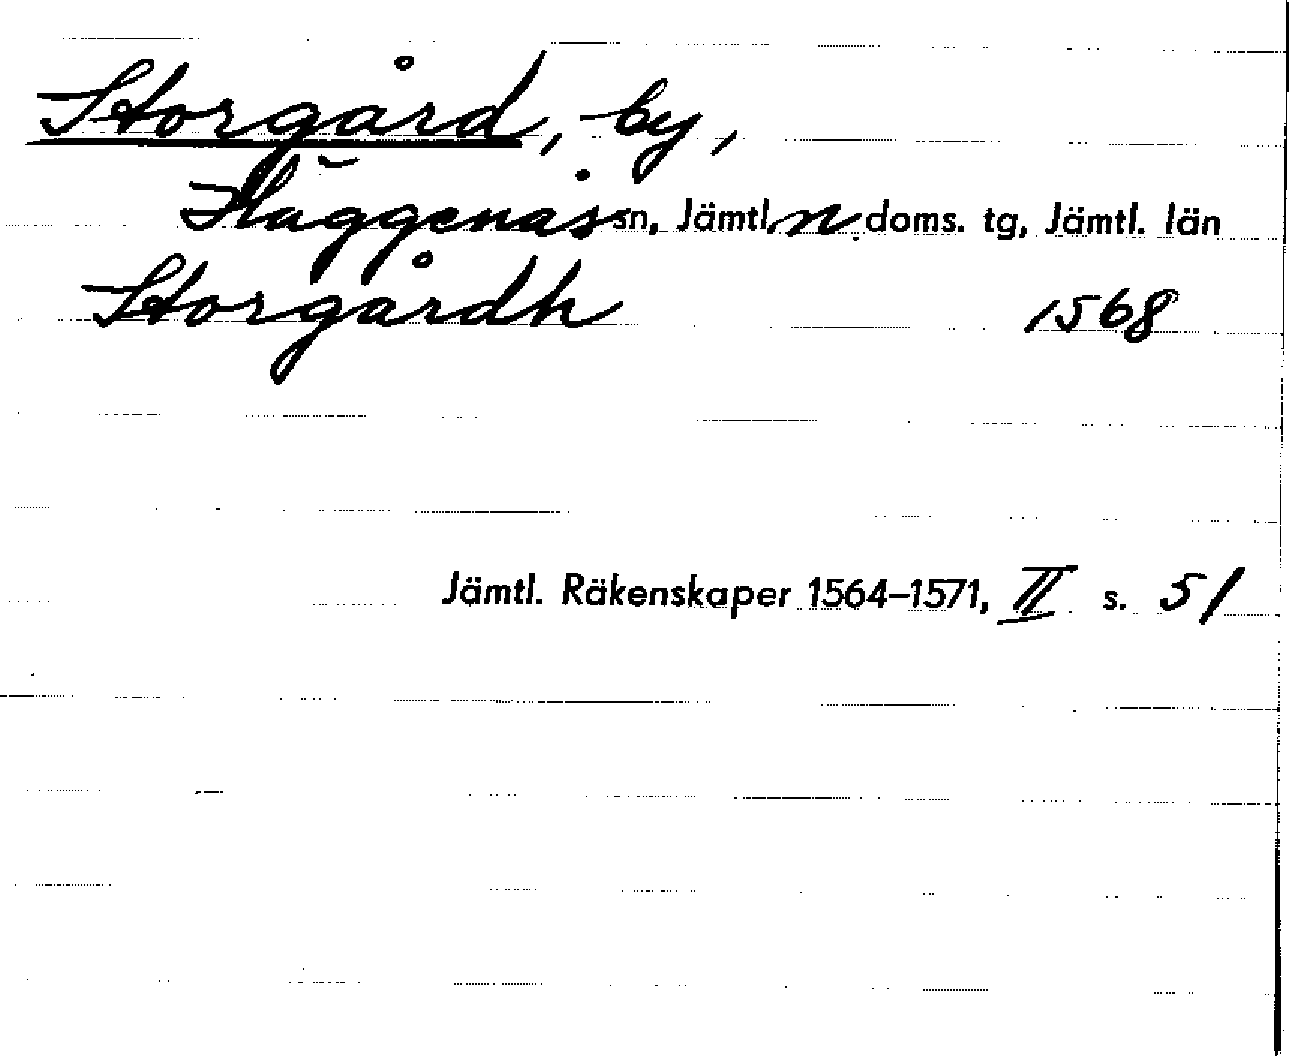 Storgård, by,
Häggenås sn, Jämtl. n. doms. tg, Jämtl. län
Storgårdh 1568
Jämtl. Räkenskaper 1564–1571, II s. 51